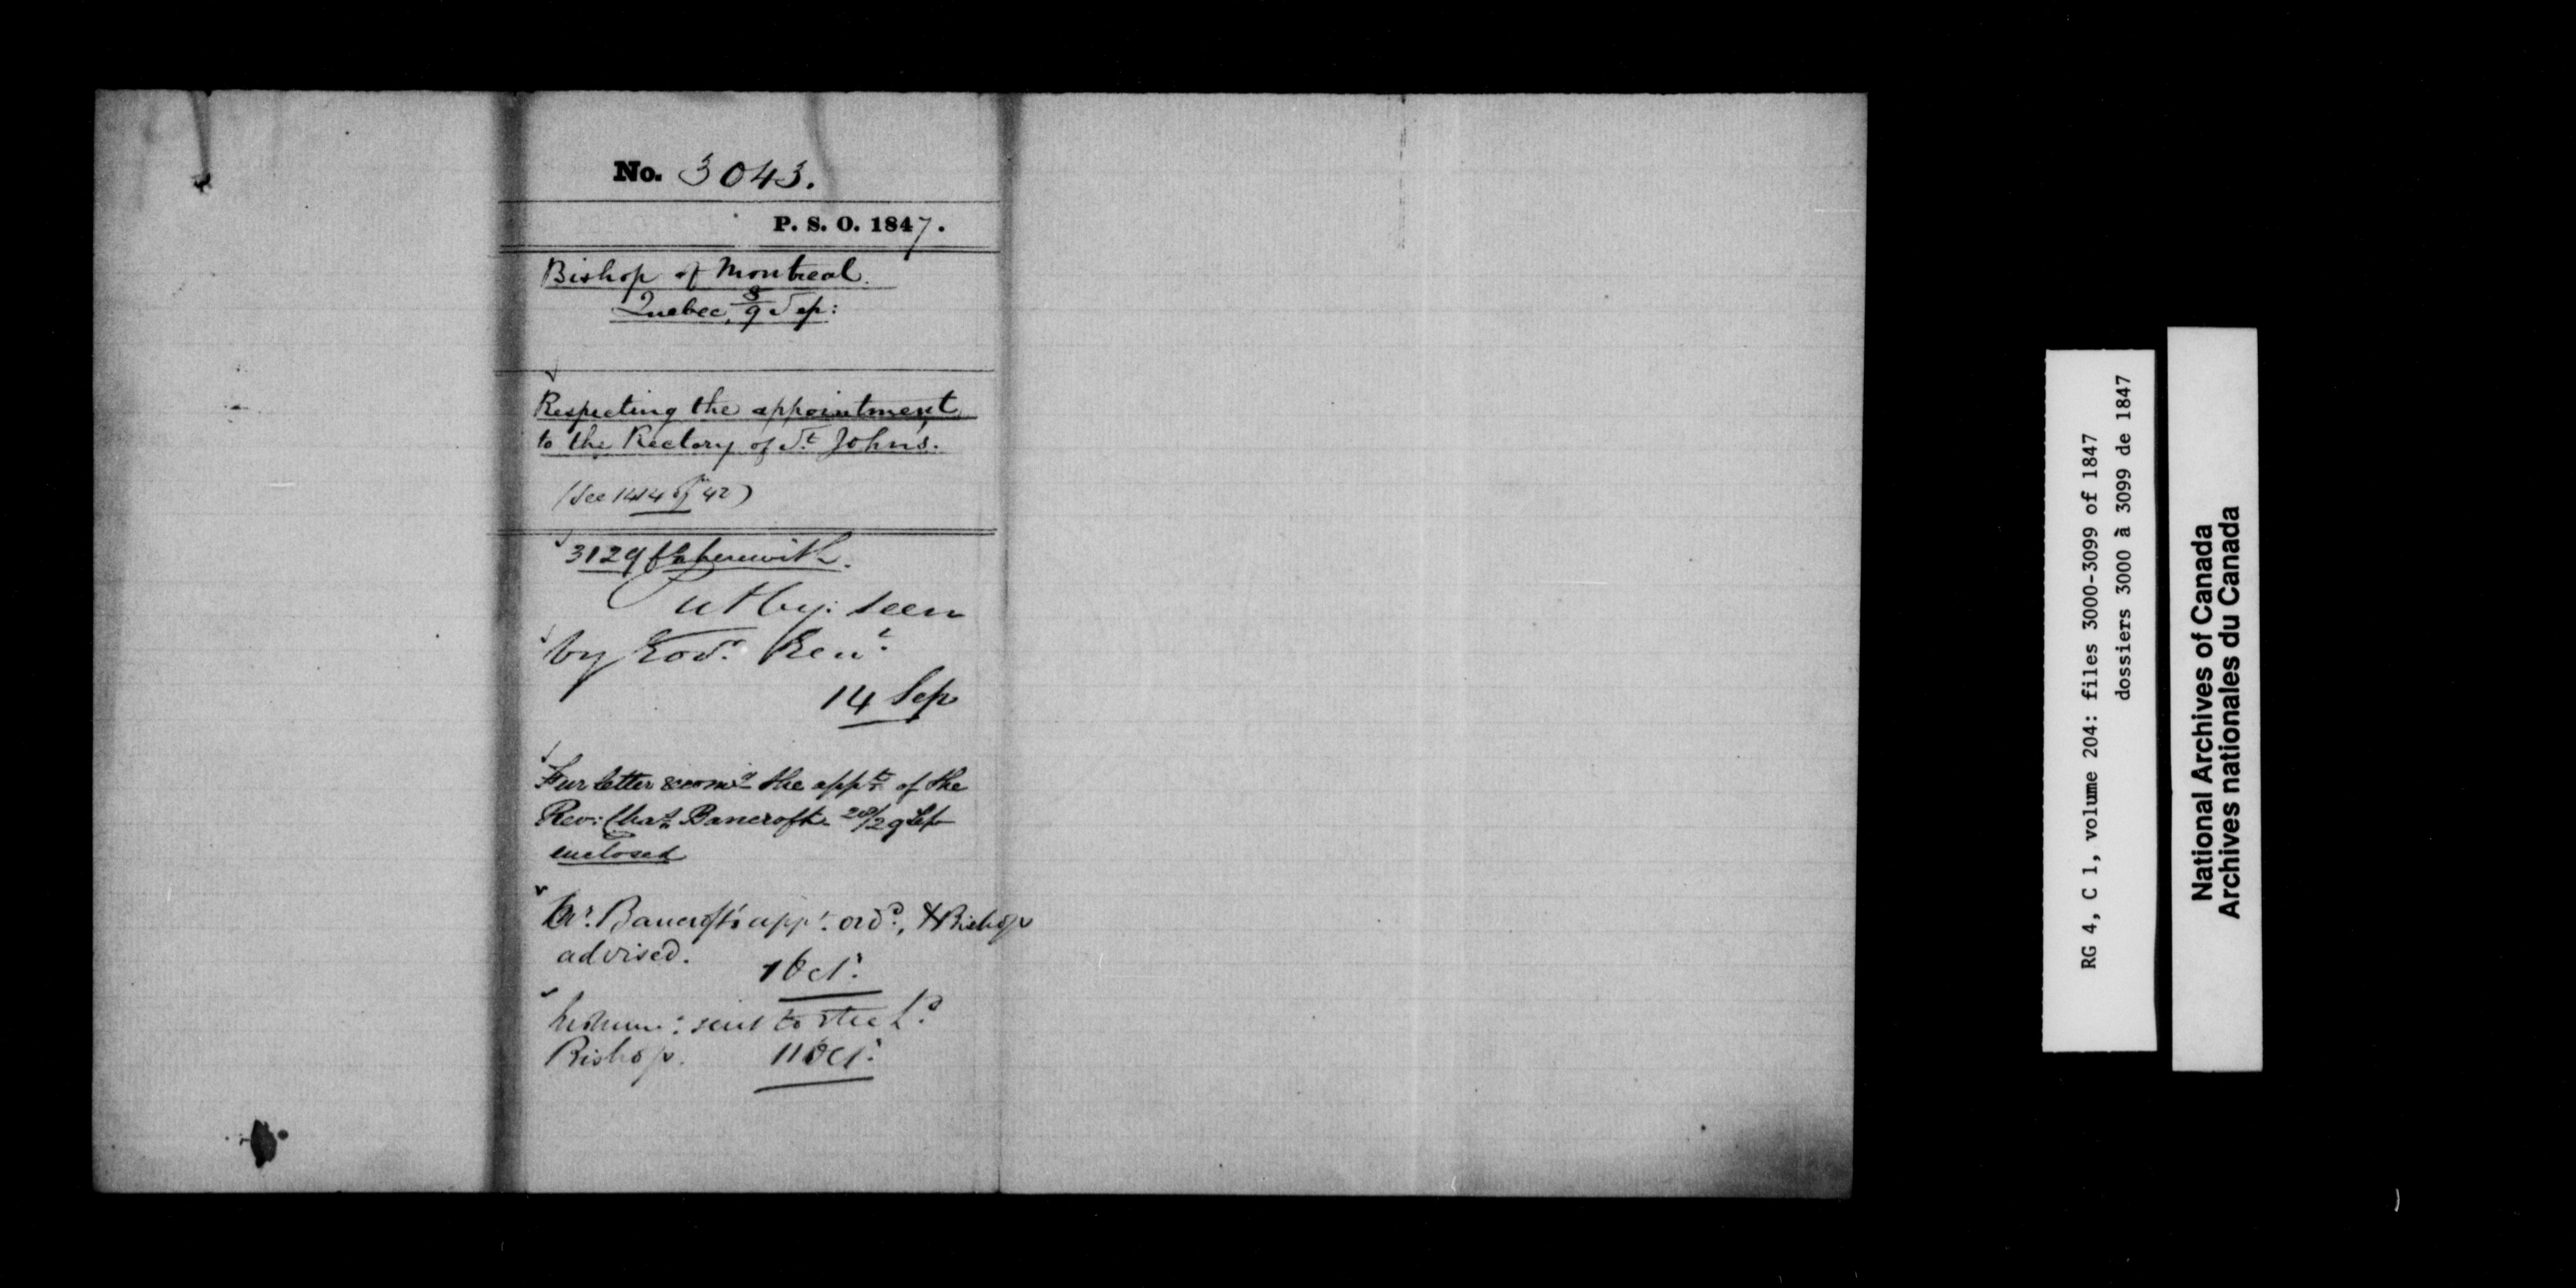 No. 3043.
P. S. O. 1847.
Bishop of Montreal.
Quebec, 8/9 Sep:
Respecting the appointment
to the Rectory of St. Johns.
(See 1414 of 42)
3129 herewith.
Put by: seen
by Govr. Genl.
14 Sep
Fur letter recomg the appt. of the
Rev: Chas. Bancroft 28/29 Sep
enclosed
Mr. Bancroft's appt. ord., & Bishop
advised.
1 Oct.
sent to the Ld.
Bishop. 11 Oct.
RG 4, C 1, volume 204: files 3000-3099 of 1847
dossiers 3000 à 3099 de 1847
National Archives of Canada
Archives nationales du Canada